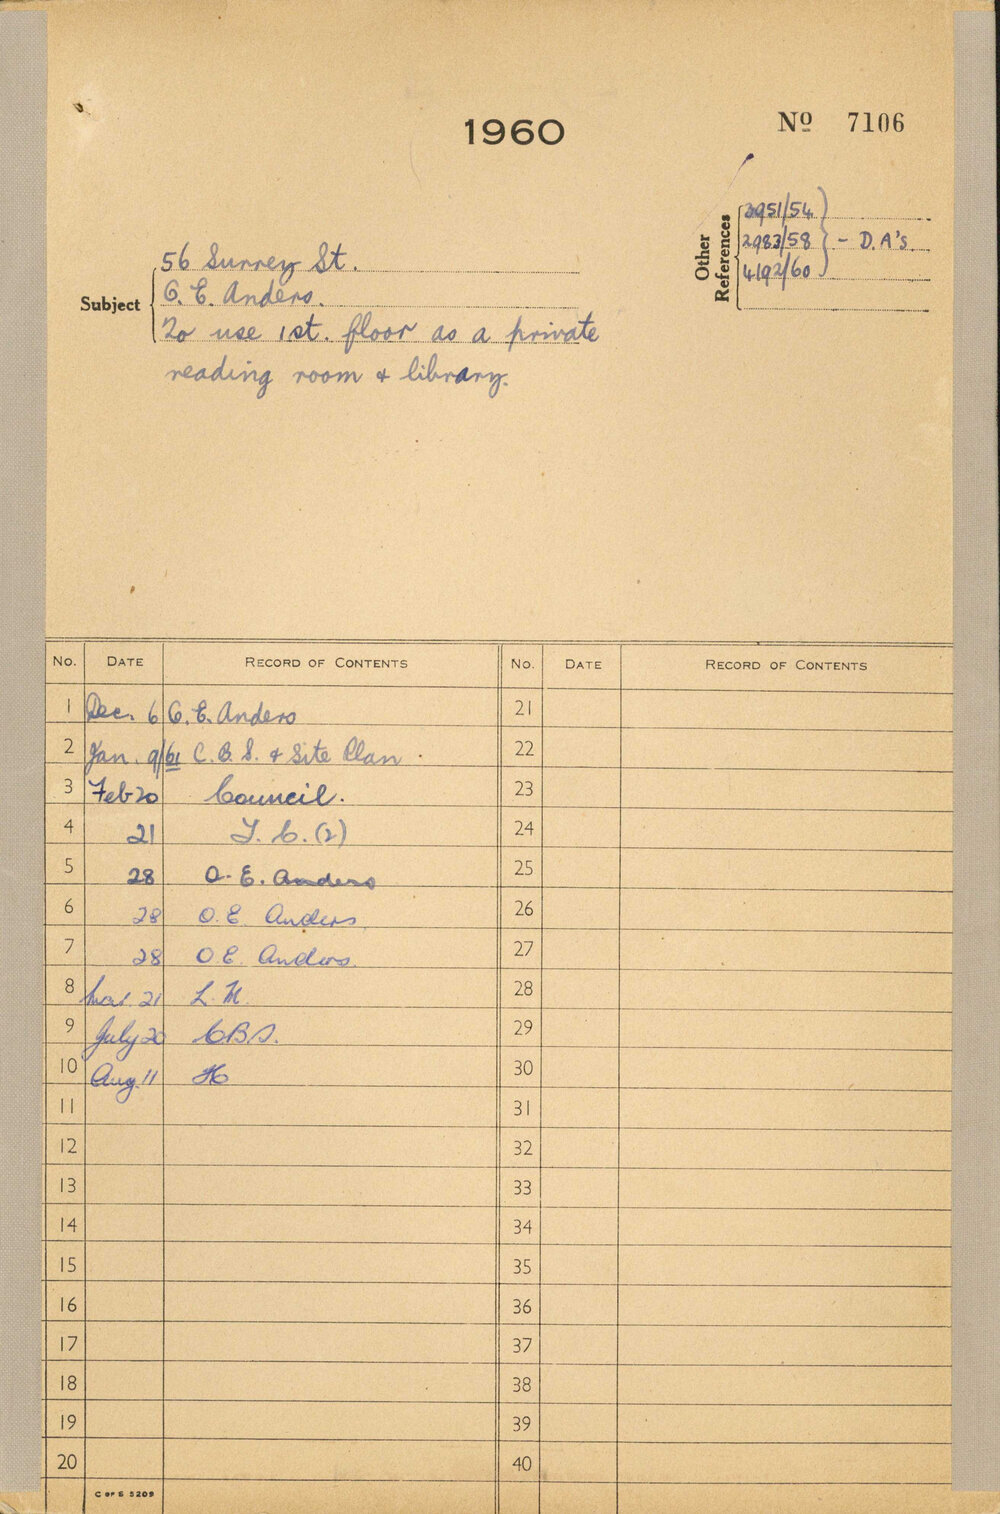 1960
Nº 7106
Other References
2951/54
2983/58 - D.A's.
4192/60
Subject
56 Surrey St.
O. E. Anders.
To use 1st. floor as a private
reading room & library.
No. DATE RECORD OF CONTENTS No. DATE RECORD OF CONTENTS
1 Dec. 6 O. E. Anders 21
2 Jan. 9/61 C. B. S. & Site Plan. 22
3 Feb 20 Council. 23
4 21 T. C. (2) 24
5 28 O. E. Anders 25
6 28 O. E. Anders 26
7 28 O E. Anders. 27
8 Mar. 21 L. M. 28
9 July 20 CBS. 29
10 Aug. 11 30
11 31
12 32
13 33
14 34
15 35
16 36
17 37
18 38
19 39
20 40
C OF S 5209